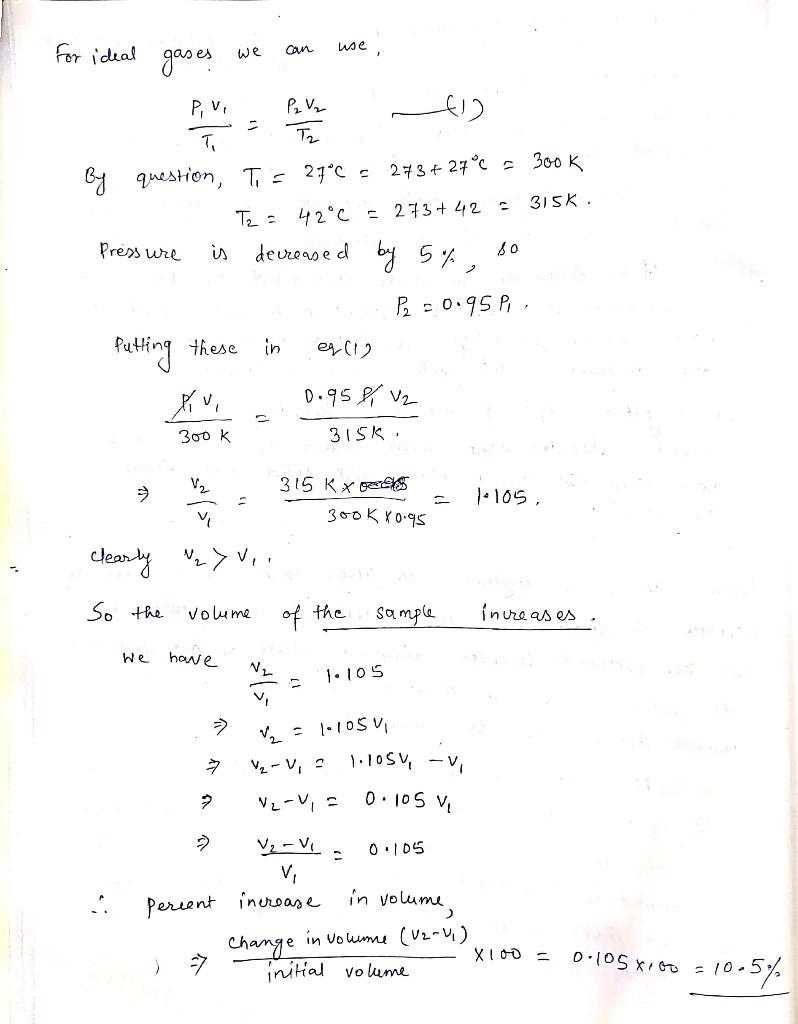 For ideal gases we can use,
P₁V₁/T₁ = P₂V₂/T₂ —(1)
By question, T₁ = 27°C = 273+27°C = 300 K
T₂ = 42°C = 273+42 = 315K.
Pressure is decreased by 5%, so
P₂ = 0.95 P₁.
Putting these in eq(1)
P₁V₁/300 K = 0.95 P₁ V₂/315K.
⇒ V₂/V₁ = 315 K×/300K×0.95 = 1.105.
Clearly V₂ > V₁.
So the volume of the sample increases.
We have V₂/V₁ = 1.105
⇒ V₂ = 1.105 V₁
⇒ V₂-V₁ = 1.105V₁ - V₁
⇒ V₂-V₁ = 0.105 V₁
⇒ V₂-V₁/V₁ = 0.105
∴ percent increase in volume,
⇒ change in volume (V₂-V₁)/initial volume ×100 = 0.105×100 = 10.5%